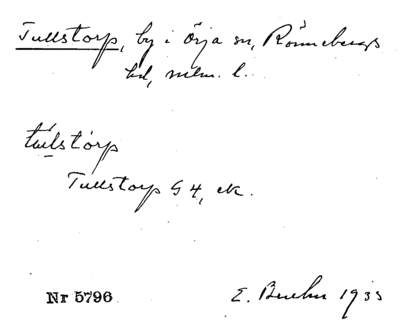 Tullstorp, by i Örja sn, Rönnebergs
hd, mlm. l.
tu̇lstȯrp
Tullstorp G4, ek.
Nr 5796
E. 1933